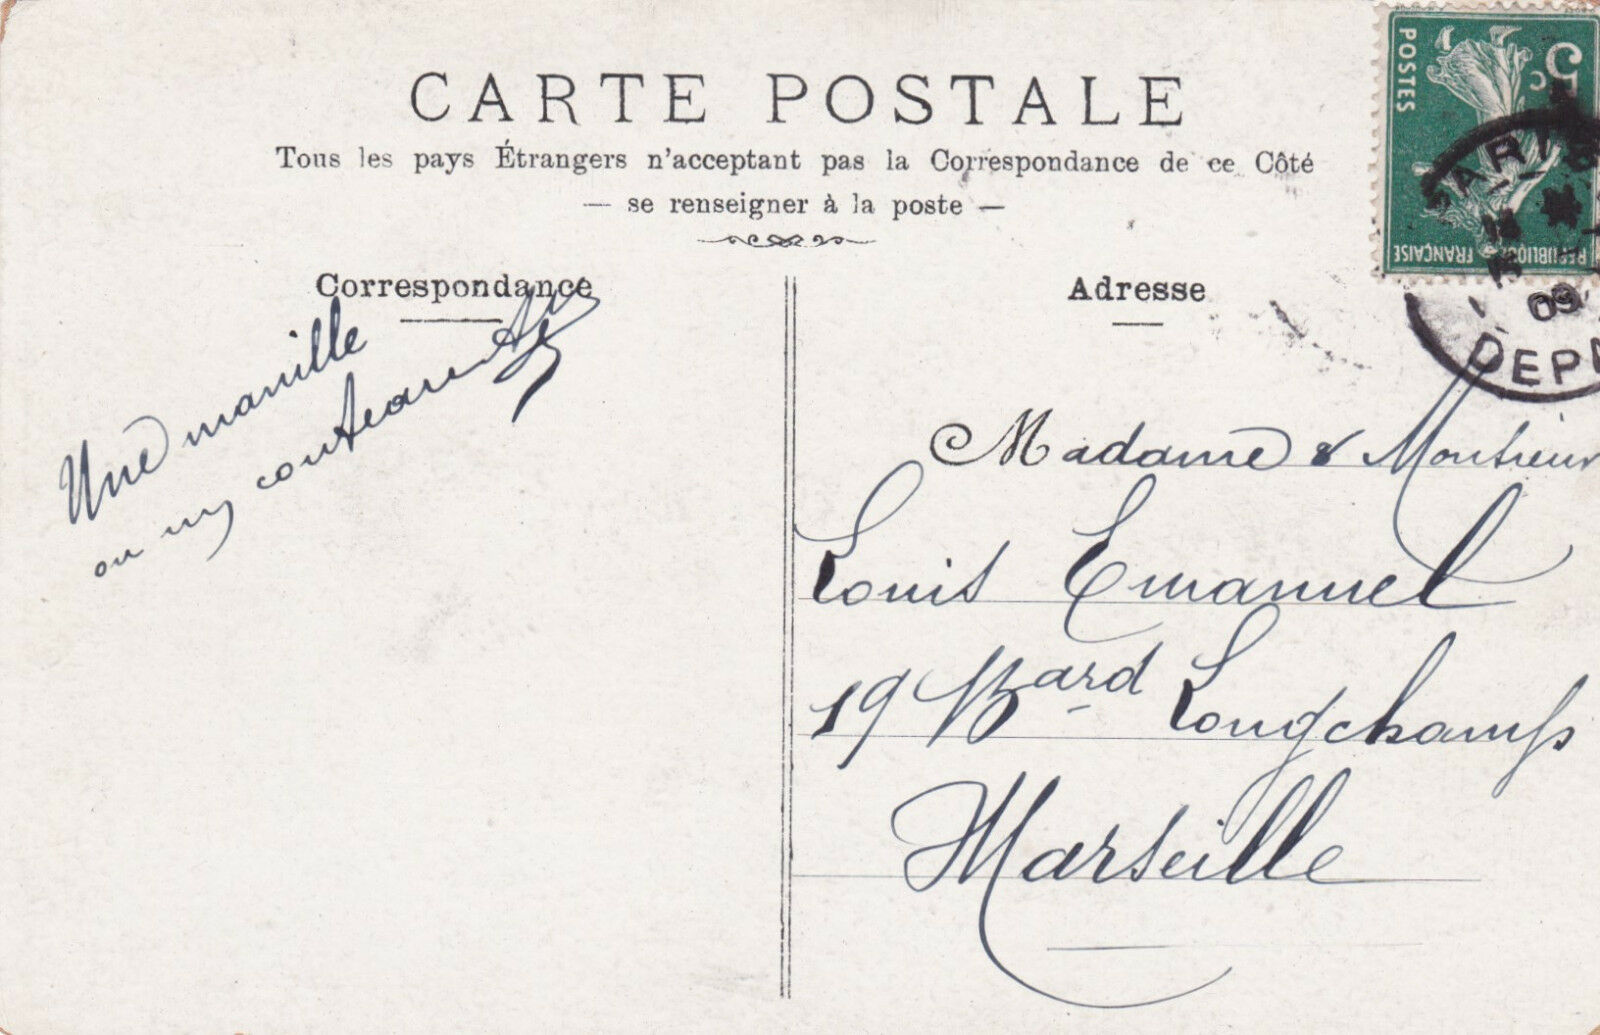 CARTE POSTALE
Tous les pays Étrangers n'acceptant pas la Correspondance de ce Côté
— se renseigner à la poste —
5c
POSTES
RÉPUBLIQUE FRANÇAISE
09
DEP
Correspondance
Une manille
on my
Adresse
Madame & Monsieur
Louis Emanuel
19 Bard Longchamps
Marseille